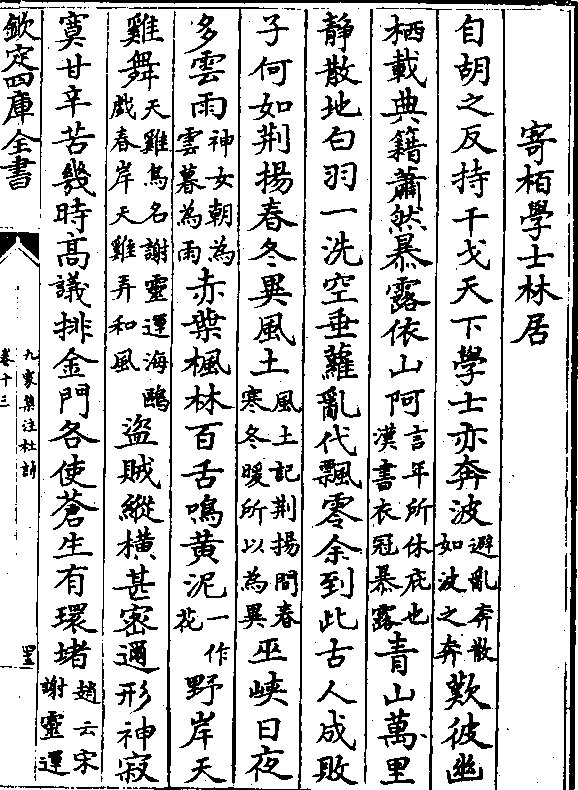 寄栢學士林居
自胡之反持干戈天下學士亦奔波避亂奔散如波之奔歎彼幽
栖載典籍蕭然暴露依山阿言年所休庇也漢書衣冠暴露青山萬里
靜散地白羽一洗空垂蘿亂代飄零余到此古人成敗
子何如荆揚春冬異風土風土記荆揚間春寒冬暖所以為異巫峽日夜
多雲雨神女朝為雲暮為雨赤葉楓林百舌鳴黄泥一作花野岸天
雞舞天雞鳥名謝靈運海鷗戲春岸天雞弄和風盜賊縱橫甚密邇形神寂
寞甘辛苦幾時高議排金門各使蒼生有環堵趙云宋謝靈運
欽定四庫全書
九家集注杜詩
卷十三